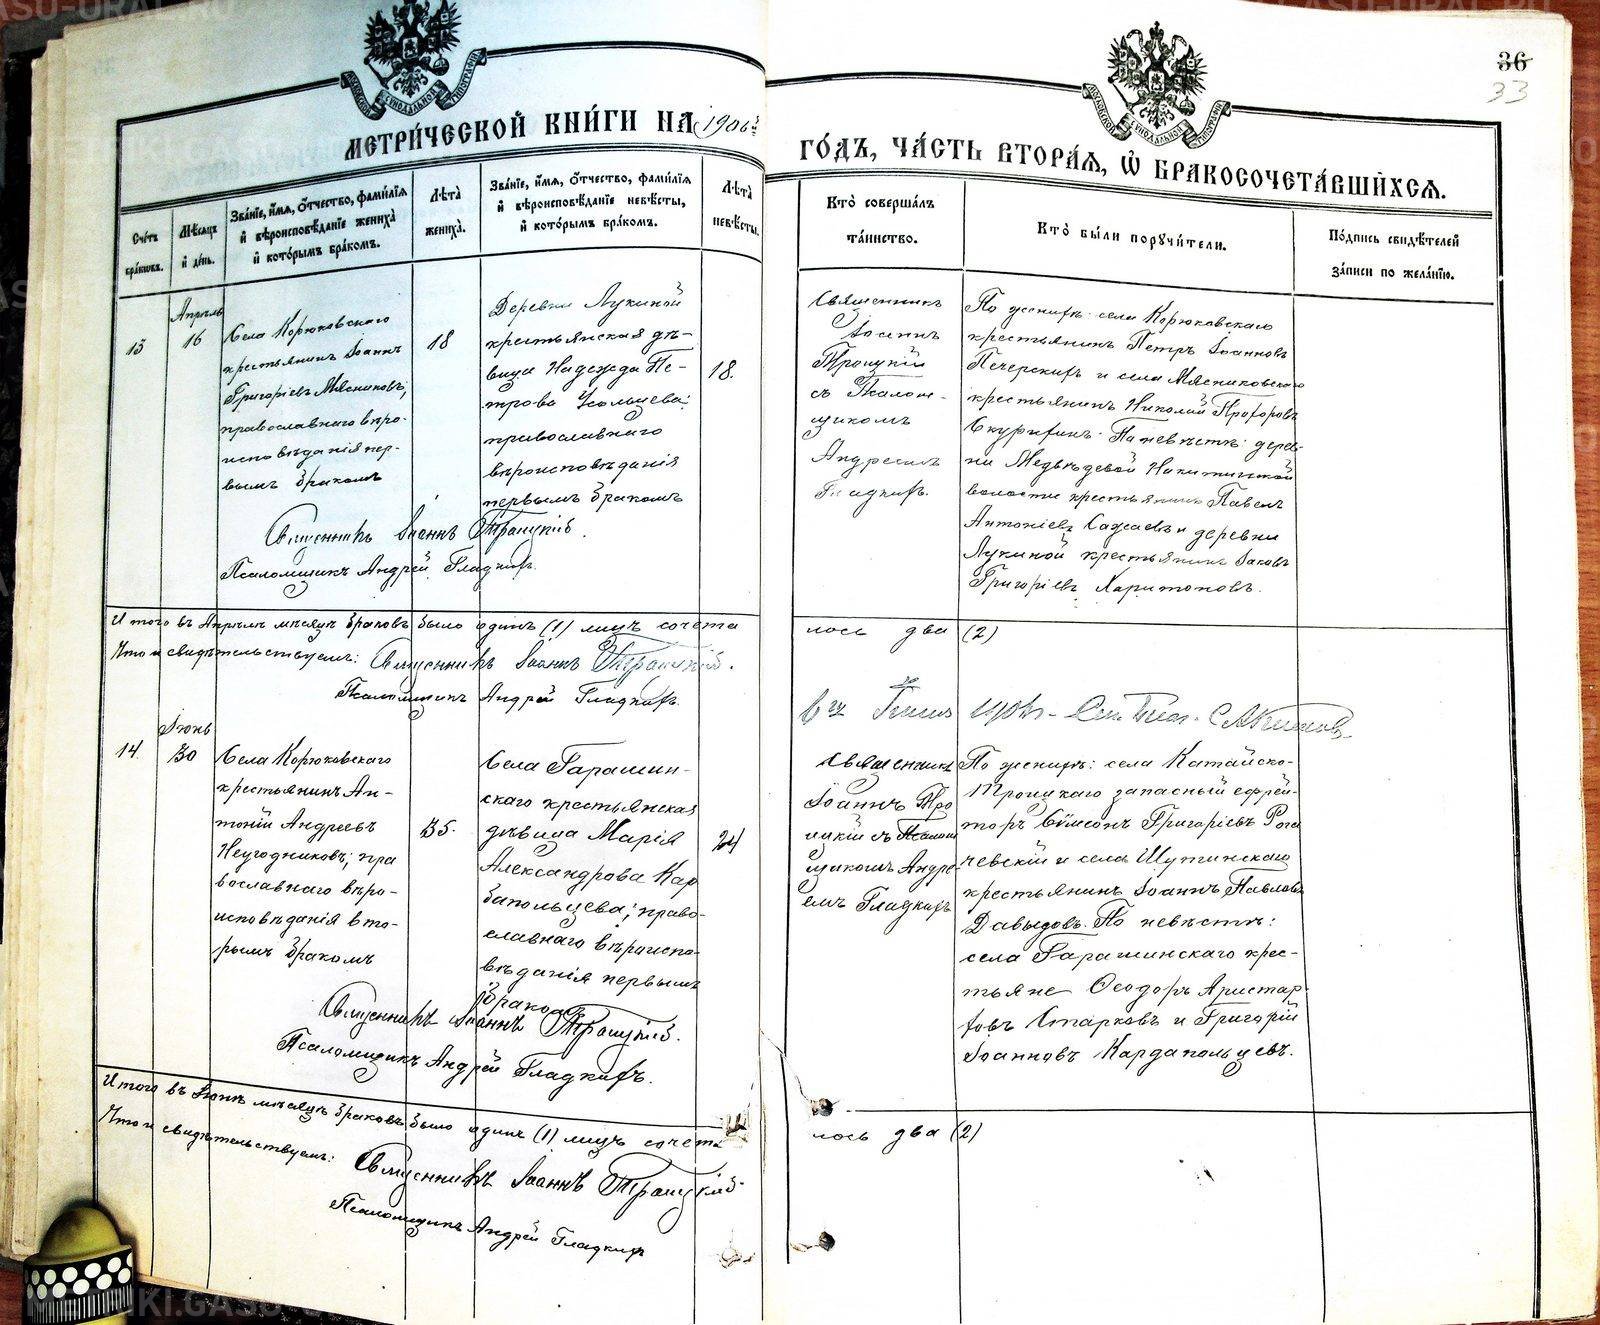 36
33
МЕТРИ́ЧЕСКОЙ КНИ́ГИ НА 1906й
ГО́ДЪ, ЧА́СТЬ ВТОРА́Я, Ѽ БРАКОСОЧЕТА́ВШИХСЯ.
Сче́тъ бра́ковъ.
Мѣ́сяцъ и де́нь.
Зва́нїе, и́мя, ѻ́тчество, фами́лїя
и҆ вѣроисповѣ́данїе жениха̀
и҆ кото́рымъ бра́комъ.
Лѣта̀
жениха̀.
Зва́нїе, и́мя, ѻ́тчество, фами́лїя
и҆ вѣроисповѣ́данїе невѣ́сты,
и҆ кото́рымъ бра́комъ.
Лѣта̀
невѣ́сты.
Кто̀ соверша́лъ
та́инство.
Кто̀ бы́ли поручи́тели.
По́дпись свидѣ́телей
за́писи по жела́нїю.
13
Апрѣль
16
Села Корюковскаго
крестьянинъ Іоаннъ
Григоріевъ Мясниковъ;
православнаго вѣро-
исповѣданія пер-
вымъ бракомъ
18
Деревни Лукиной
крестьянская дѣ-
вица Надежда Пе-
трова Усольцева;
православнаго
вѣроисповѣданія
первымъ бракомъ
18.
Священникъ
Іоаннъ
Троицкій
съ Псалом-
щикомъ
Андреемъ
Гладкихъ.
По женихѣ: села Корюковскаго
крестьянинъ Петръ Іоанновъ
Печеркинъ и села Мясниковскаго
крестьянинъ Николай Прохоровъ
Скурихинъ. По невѣстѣ: дерев-
ни Медвѣдевой Никитинской
волости крестьянинъ Павелъ
Антоніевъ Сажаевъ и деревни
Лукиной крестьянинъ Іаковъ
Григоріевъ Харитоновъ.
Священникъ Іоаннъ Троицкій.
Псаломщикъ Андрей Гладкихъ.
Итого въ Апрѣлѣ мѣсяцѣ браковъ было одинъ (1) лицъ сочета
лось два (2)
Что и свидѣтельствуемъ: Священникъ Іоаннъ Троицкій.
Псаломщикъ Андрей Гладкихъ.
14.
Іюнь
30
Села Корюковскаго
крестьянинъ Ан-
тоній Андреевъ
Неугодниковъ; пра
вославнаго вѣро-
исповѣданія вто-
рымъ бракомъ
35.
Села Гарашин-
скаго крестьянская
дѣвица Марія
Александрова Кар
дапольцева; право-
славнаго вѣроиспо-
вѣданія первымъ
бракомъ
24
Священникъ
Іоаннъ Тро
ицкій съ Псалом
щикомъ Андре-
емъ Гладкихъ
По женихѣ: села Катайско-
Троицкаго запасный ефрей-
торъ Сѵмеонъ Григоріевъ Рога
чевскій и села Шутинскаго
крестьянинъ Іоаннъ Павловъ
Давыдовъ. По невѣстѣ:
села Гарашинскаго крес-
тьяне Ѳеодоръ Аристар
ховъ Старковъ и Григорій
Іоанновъ Кардапольцевъ.
Священникъ Іоаннъ Троицкій.
Псаломщикъ Андрей Гладкихъ.
Итого въ Іюнѣ мѣсяцѣ браковъ было одинъ (1) лицъ сочета
лось два (2)
Что и свидѣтельствуемъ: Священникъ Іоаннъ Троицкій.
Псаломщикъ Андрей Гладкихъ